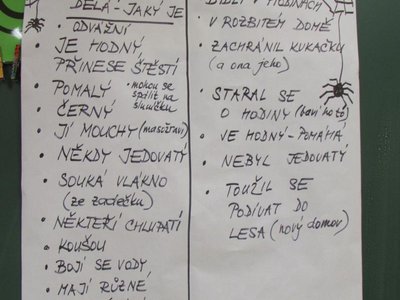 DĚLÁ - JAKÝ JE
• ODVÁŽNÍ
• JE HODNÝ,
PŘINESE ŠTĚSTÍ
• POMALÝ
• mohou se
spálit na
sluníčku
• ČERNÝ
• JÍ MOUCHY (masožraví)
• NĚKDY JEDOVATÝ
• SOUKÁ VLÁKNO
(ze zadečku)
• NĚKTEŘÍ CHLUPATÍ
• KOUŠOU
• BOJÍ SE VODY
• MAJÍ RŮZNÉ
V ROZBITÉM DOMĚ
• ZACHRÁNIL KUKAČKU
(a ona jeho)
• STARAL SE
O HODINY (baví ho to)
• VE HODNÝ - POMÁHÁ
• NEBYL JEDOVATÝ
• TOUŽIL SE
PODÍVAT DO
LESA (nový domov)